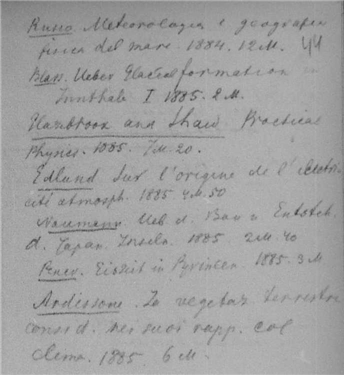 Russo Meteorologia e geografia
fisica del mare. 1884. 12M. 44
Blaas. Ueber Glacialformation
Innthale I 1885. 2 M.
Glazebrook and Shaw Practical
Physics. 1885. 7M.20.
Edlund Sur l'origine de l'électri-
cité atmosph. 1885 4M.50
Naumann. Ueb. d. Bau u Entsteh.
d. Japan. Inseln. 1885 2M. 40
Penck. Eiszeit in Pyrinäen. 1885. 3M
Ardissone. La vegetaz. terrestre
consid. nei suoi rapp. col
clima. 1885. 6 M.